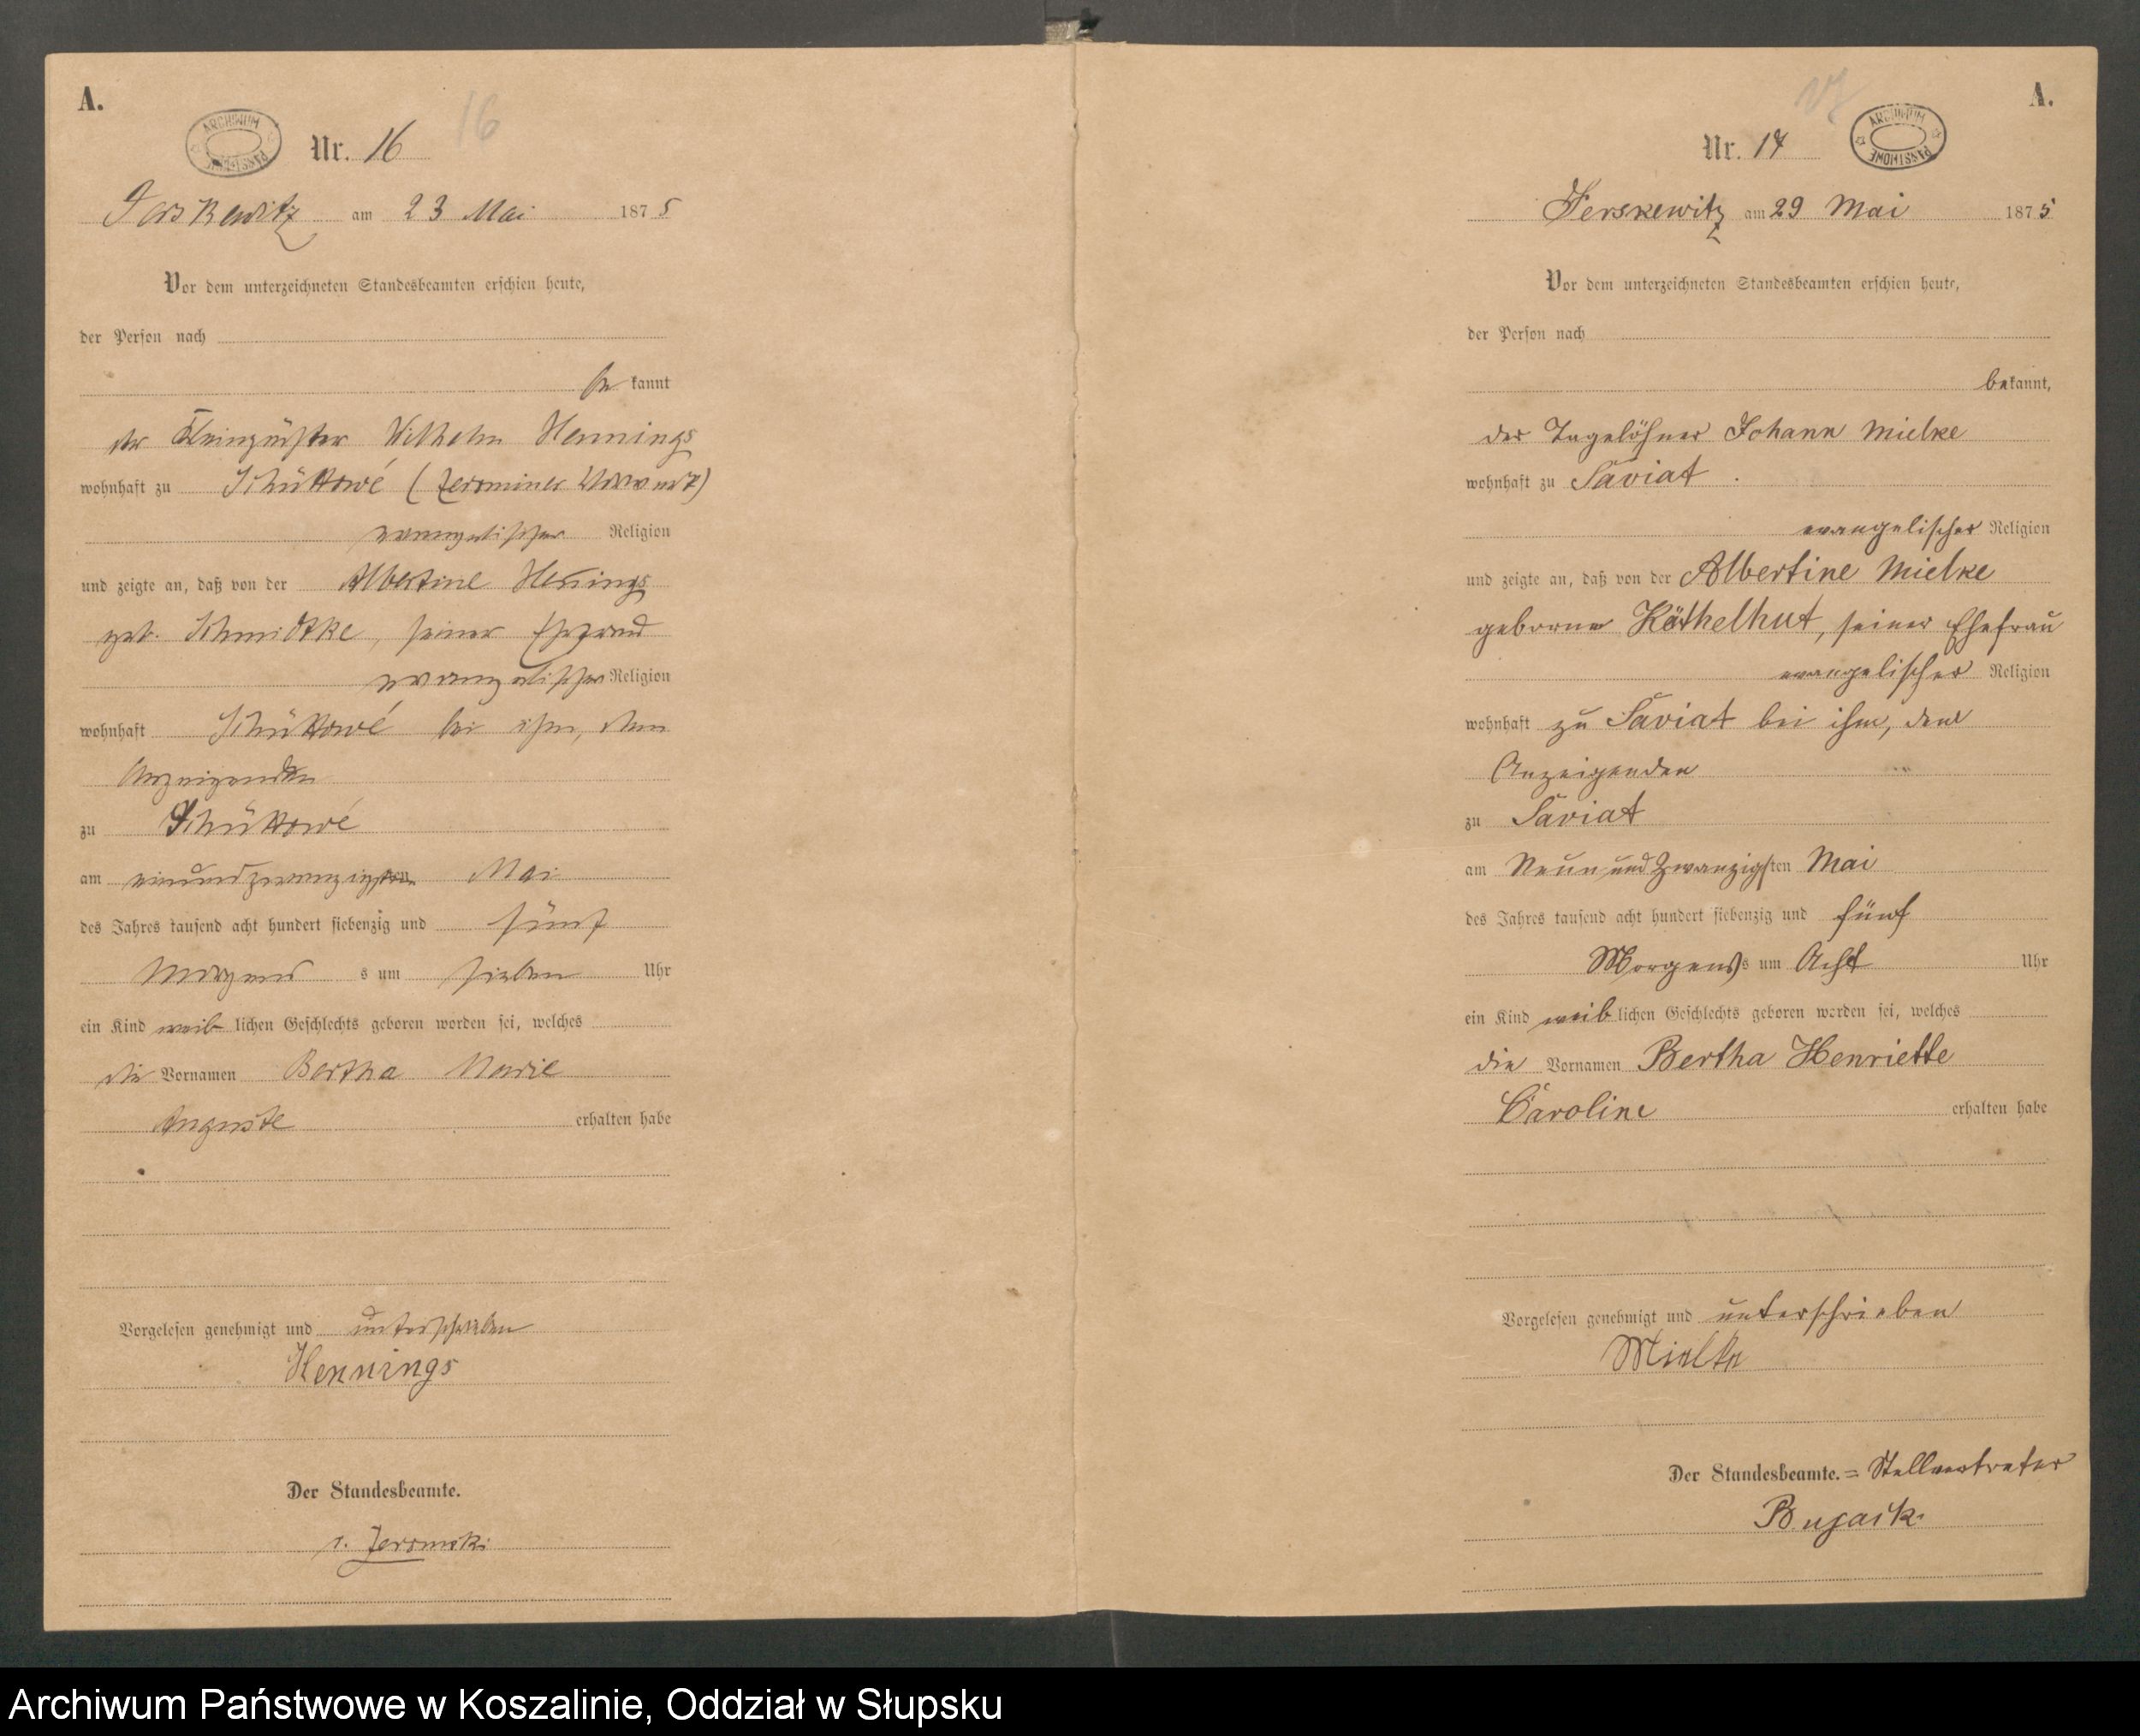 A.
ARCHIWUM PAŃSTWOWE
Nr. 16
16
am 23 Mai 1875
Vor dem unterzeichneten Standesbeamten erschien heute,
der Person nach
be kannt
der Wilhelm Hennings
wohnhaft zu (Zerominer
evangelischer Religion
und zeigte an, daß von der Albertine Hennings
geb. Schmidtke, seiner Ehefrau
evangelischer Religion
wohnhaft bei ihm, dem
Anzeigenden
zu
am einundzwanzigsten Mai
des Jahres tausend acht hundert siebenzig und fünf
Morgens um sieben Uhr
ein Kind weib lichen Geschlechts geboren worden sei, welches
die Vornamen Bertha Marie
Auguste erhalten habe
Vorgelesen genehmigt und unterschrieben
Hennings
Der Standesbeamte.
v. Zeromski
A.
Nr. 17
17
ARCHIWUM PAŃSTWOWE
Ferskewitz am 29 Mai 1875
Vor dem unterzeichneten Standesbeamten erschien heute,
der Person nach
bekannt,
der Tagelöhner Johann Mielke
wohnhaft zu Saviat.
evangelischer Religion
und zeigte an, daß von der Albertine Mielke
geborne Käthelhut, seiner Ehefrau
evangelischer Religion
wohnhaft zu Saviat bei ihm, dem
Anzeigenden
zu Saviat
am Neun und Zwanzigsten Mai
des Jahres tausend acht hundert siebenzig und fünf
Morgens um Acht Uhr
ein Kind weib lichen Geschlechts geboren worden sei, welches
die Vornamen Bertha Henriette
Caroline erhalten habe
Vorgelesen genehmigt und unterschrieben
Mielke
Der Standesbeamte. = Stellvertreter
Archiwum Państwowe w Koszalinie, Oddział w Słupsku